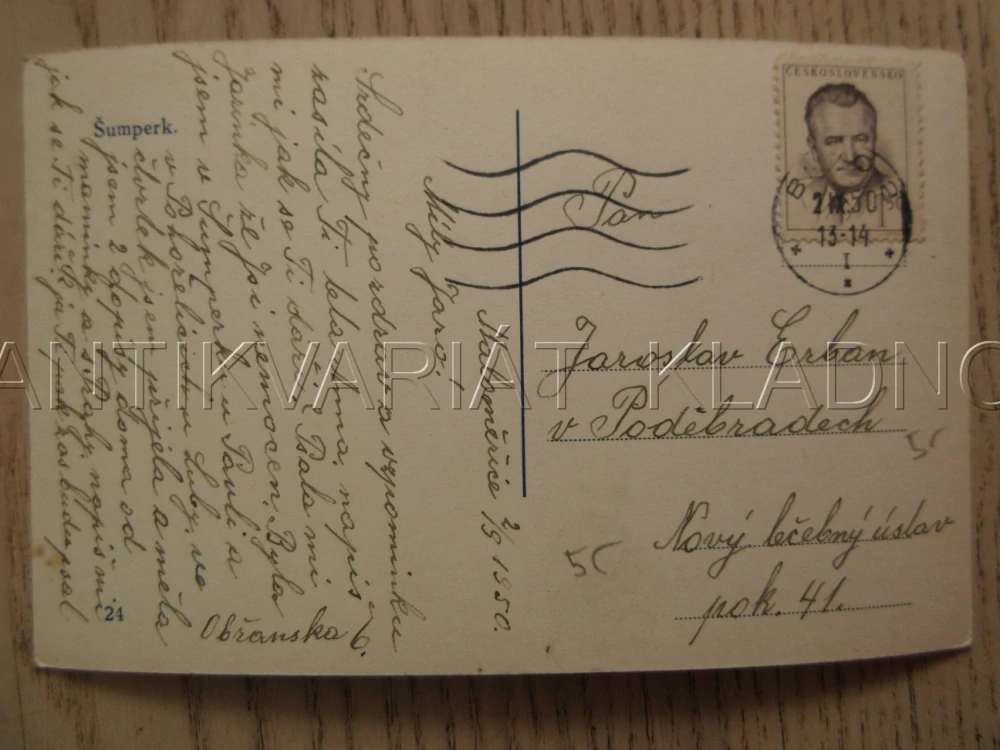 Šumperk.
Maloměřice 2/9 1950.
Milý Jaro!
Srdečný pozdrav a vzpomínku
zasílá Ti teta Anna, napiš
mi jak se Ti daří, Psala mi
Jarunka že jsi nemocen, Byla
jsem v Šumperku u Pavli a
v Bhořelicich u Luby, ve
čtvrtek jsem přijela a měla
jsem 2 dopisy doma od
maminky a s Prahy, napiš mi
jak se Ti daří, já Ti pak zas budu psal
Obřanska 6.
24
ČESKOSLOVENSKO
BRNO
2 IX. 50
13-14
1
Pan
Jaroslav Erban
v Poděbradech
Nový léčebný ústav
pok. 41.
5C
5C
ANTIKVARIÁT KLADNO